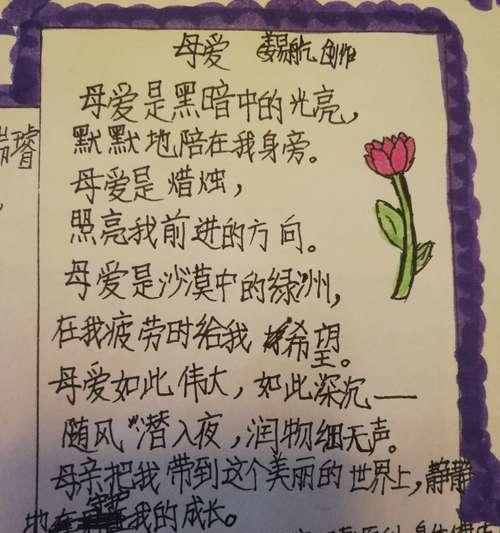 母爱 易航创作
母爱是黑暗中的光亮，
默默地陪在我身旁。
母爱是 蜡烛，
照亮我前进的方向。
母爱是沙漠中的绿洲，
在我疲劳时给我 希望。
母爱如此 伟大，如此深沉——
随风"潜入夜，润物细无声。
母亲把我 带到这个美丽的 世界上，静静
地在我的成长。
璿